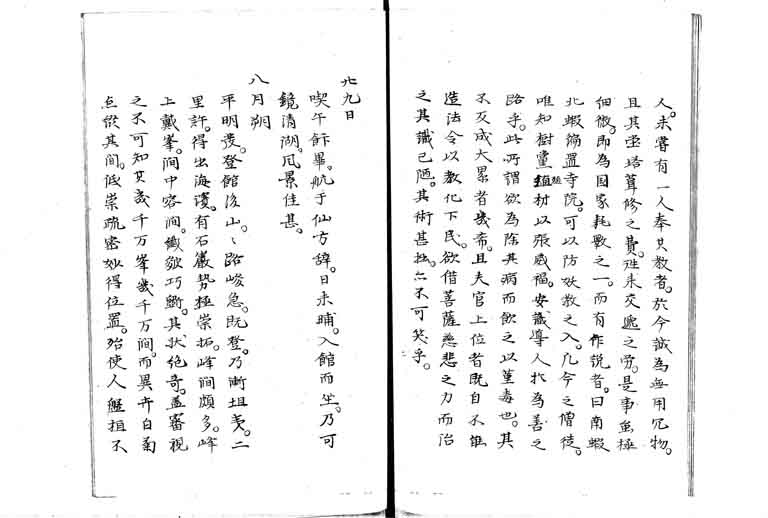 人。未嘗有一人奉其教者。於今誠為無用冗物。
且其堂塔葺修之費。迎來交遞之労。是事虽極
細微。即為国家耗斁之一。而有作説者。曰南蝦
北蝦緿置寺院。可以防妖教之入。凡今之僧徒。
唯知樹黨植材以張威福。安識導人於為善之
路乎。此所謂欲為除其病而飲之以菫毒也。其
不反成大累者幾希。且夫官上位者既自不能
造法令以教化下民。欲借菩薩慈悲之力而治
之其識已陋。其術甚拙。亦不可笑乎。
廿九日
喫午餅畢。航于仙方辞。日未晡。入館而坐。乃可
鏡清湖。风景佳甚。
八月朔
平明發。登館後山。〻路峻急。既登。乃漸坦夷。二
里許。得出海濱。有石巖势極崇拓。峰澗頗多。峰
上戴峯。澗中容澗。鐵皴巧斷。其狀绝奇。盖審視
之不可知其幾千万峯幾千万澗。而異卉白菊
点綴其间。低崇疏密妙得位置。殆使人盤桓不